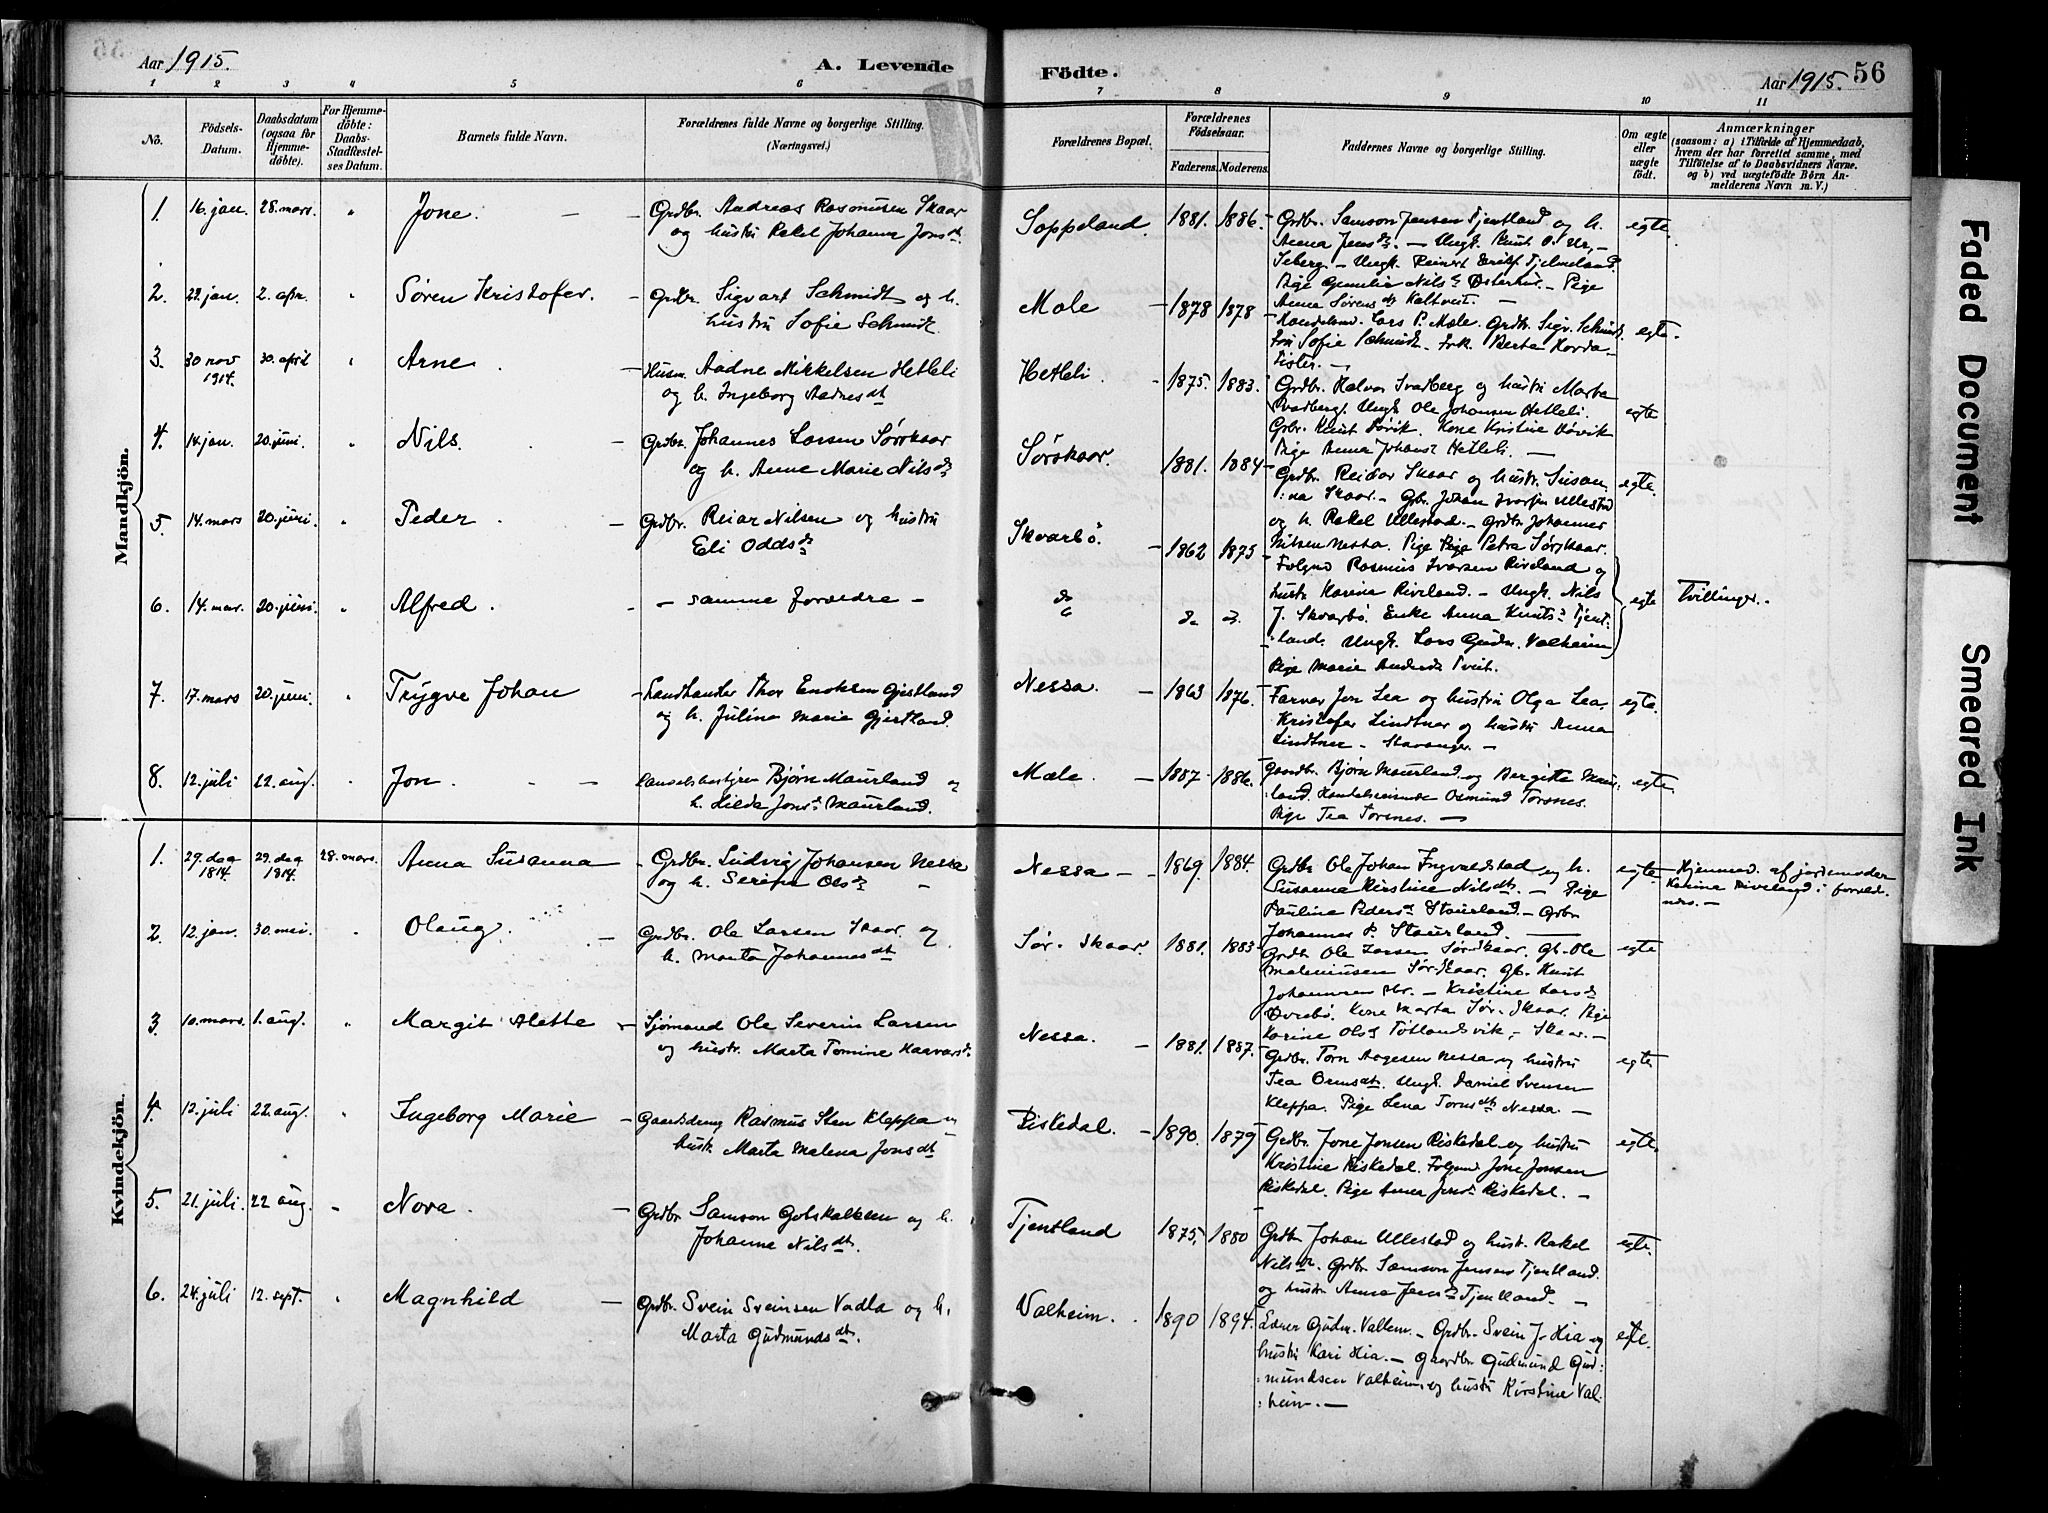 Aar 1915.
A. Levende
Födte.
Aar 1915.
56
1 2 3 4 5 6 7 8 9 10 11
No.
Födsels-Datum.
Daabsdatum (ogsaa for Hjemmedöbte).
For Hjemmedöbte: Daabs-Stadfestelses Datum.
Barnets fulde Navn.
Forældrenes fulde Navne og borgerlige Stilling. (Næringsvei.)
Forældrenes Bopæl.
Forældrenes Födselsaar.
Faderens. Moderens.
Faddernes Navne og borgerlige Stilling.
Om ægte eller uægte födt.
Anmærkninger
(saasom: a) i Tilfælde af Hjemmedaab,
hvem der har forrettet samme, med
Tilföielse af to Daabsvidners Navne.
og b) ved uægtefödte Börn An-
melderens Navn m. V.)
Mandkjön.
1. 16. jan. 28. mars. " Jone. - - Grdbr. Andreas Rasmusen Skaar
og hustru Rakel Johanna Jonsdt.
Soppeland. 1881. 1886.
Grdbr. Samson Jensen Tjentland og h.
Anna Jensdt. -
egte.
2. 22. jan. 2. apr. " Søren Kristofer. - Grdbr. Sigvart Schmidt og h.
hustru Sofie Schmidt.
Mæle - 1878 1878
Lars P. Mæle. Grdbr. Sigv. Schmidt.
fru Sofie Schmidt. Frk. Berta
egte.
3. 30 nov 1914. 30. april " Arne - Husm. Aadne Mikkelsen Hetleli
og h. Ingeborg Aadnesdt
Hetleli. - 1875. 1883.
Grdbr. Halvor Svadberg og hustru Marta
Svadberg. Ungk. Ole Johansen Hetleli.
Pige Anna Johansdt Hetleli. -
egte
4. 14. jan. 20. juni. " Nils. - Grdbr. Johannes Larsen Sørskaar
og h. Anne Marie Nilsdt
Sørskaar. 1881. 1884
Grdbr. Reidar Skaar og hustr. Susan-
na Skaar. - Gb. Johan Ullestad
og h. Rakel Ullestad. - Grdbr. Johannes
Nilsen Nessa. Pige Pige Petra Sørskaar.
egte.
5. 14. mars 20. juni. " Peder. - Grdbr. Reiar Nilsen og hustru
Eli Oddsdt
Skvarbö. - 1862 1875
Folgmd Rasmus Ivarsen Riveland og
hustr. Karine Riveland. - Ungk. Nils
J. Skvarbö. Enke Anna Knutsdt Tjent-
land. Ungk. Lars Gudm. Valheim
Pige Marie Andersdt Tveit.
egte
Tvillinger.
6. 14. mar. 20. juni. " Alfred. - - samme forældre -
do do do
7. 17. mars 20. juni. " Trygve Johan - Landhandler Thor Enoksen Gjestland
og h. Juline Marie Gjestland.
Nessa. - 1863 1876.
Farver Jon Lea og hustru Olga Lea
Kristofer Lindtner og hustru Anna
Lindtner - Stavanger. -
egte.
8. 12. juli 22. aug. " Jon. - - Bjørn Maurland og
h. Hilda Jonsdt Maurland.
Mæle. - 1887 1886.
Gaardbr. Bjørn Maurland og Bergitte Maur-
land. Osmund Torsnes.
Pige Tea Torsnes. -
egte.
Kvindekjön.
1. 29. dag 1814. 29. dag 1914. 28. mars. Anna Susanna - Grdbr. Ludvig Johansen Nessa
og h. Serine Olsdt -
Nessa - - 1869. 1884.
Grdbr. Ole Johan Ingvaldstad og h.
Susanna Kirstine Nilsdt. - Pige
Pauline Pedersdt Staurland. - Grdbr.
Johannes P. Staurland. -
egte
Hjemmed. af jordemoder
Karine Riveland i foræld-
res. -
2. 12. jan. 30. mai. " Olaug. - Grdbr. Ole Larsen Skaar og
h. Marta Johannesdt
Sør-Skaar. 1881. 1883
Grdbr. Ole Larsen Sør-Skaar. Gb. Ole
Sør-Skaar. Gb. Knut
- Kristine Larsdt
Kone Marta Sør-Skaar. Pige
Karine Olsdt Tøtlandsvik, - Skaar. -
egte
3. 10. mars. 1. aug. " Margit Alette - Sjømand Ole Severin Larsen
og hustr. Marta Tomine Haavarsdt
Nessa. - 1881. 1887.
Grdbr. Torn Aagesen Nessa og hustru
Tea Ormsdt. Ungk. Daniel Svensen
Kleppa. Pige Lena Tornsdt Nessa. -
egte
4. 12. juli 22. aug. " Ingeborg Marie - Gaardsdreng Rasmus Sten Kleppa og
hustr. Marta Malena Jonsdt
Riskedal. - 1890. 1879
Grdbr. Jone Jonsen Riskedal og hustru
Kristine Riskedal. Folgmd Jone Jonsen
Riskedal. Pige Anna Jonsdt Riskedal. -
egte.
5. 21. juli. 22 aug. " Nora. - Grdbr. Samson Gotskalksen og h.
Johanne Nilsdt.
Tjentland 1875. 1880
Grdbr. Johan Ullestad og hust. Rakel
Nilsdt. Grdbr. Samson Jensen Tjentland.
og hustr. Anna Jensdt Tjentland. -
egte.
6. 24. juli 12. sept. " Magnhild - Grdbr. Svein Sveinsen Vadla og h.
Marta Gudmundsdt.
Valheim. 1890 1894.
Lærer Gudm. Vallem. - Grdbr. Svein J. Hia og
hustru Kari Hia. - Gaardbr. Gudmund Gud-
mundsen Valheim og hustru Kirstine Val-
heim. -
egte.
Faded Document
Smeared Ink